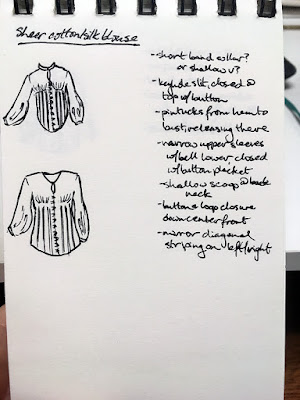 sheer cotton/silk blouse
-short band collar?
or shallow v?
-keyhole slit, closed @
top w/button
-pintucks from hem to
bust, releasing there
-narrow upper sleeves
w/bell lower closed
w/button placket
-shallow scoop @ back
neck
-button & loop closure
down center front
-mirror diagonal
striping on left/right